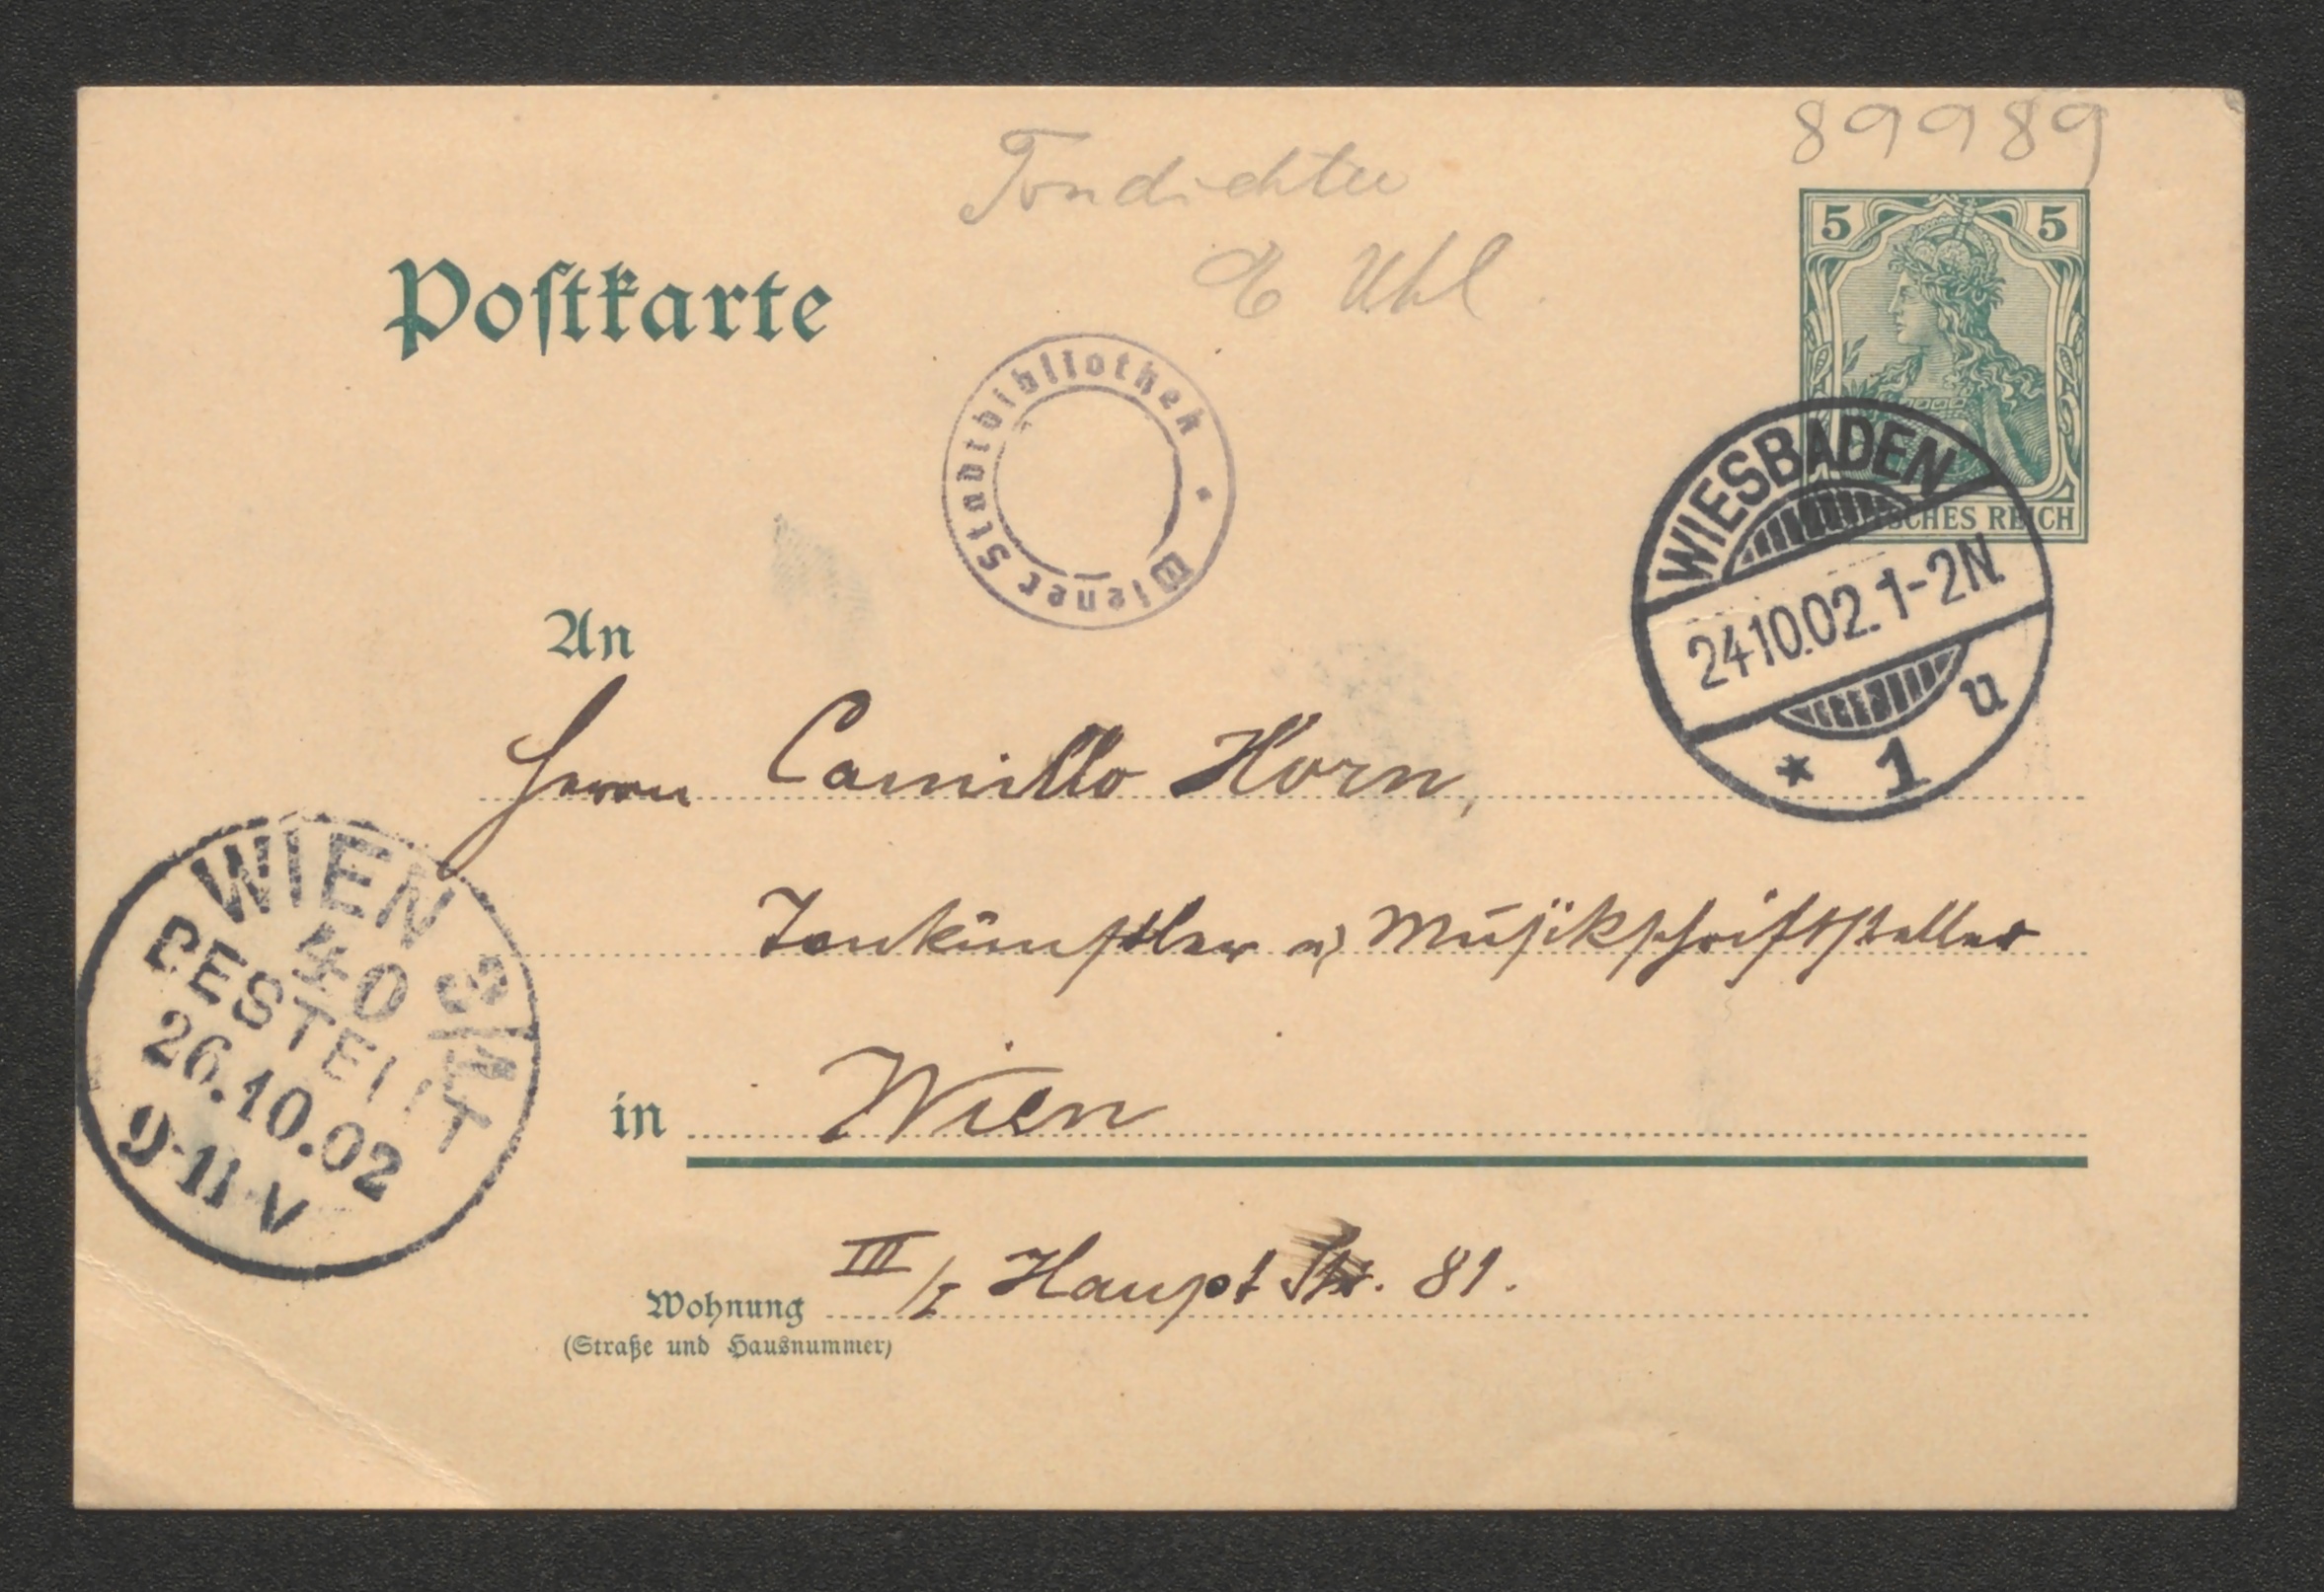 89989
Tondichter
E Uhl
5 5
DEUTSCHES REICH
Postkarte
Wiener Stadtbibliothek
WIESBADEN
24.10.02. 1-2N.
* 1 u
An
Herrn Camillo Horn,
Tonkünstler u) Musikschriftsteller
in Wien
WIEN 3/1
40
BESTELLT
26.10.02
9-11·V
III/I Haupt Str. 81.
Wohnung
(Straße und Hausnummer)